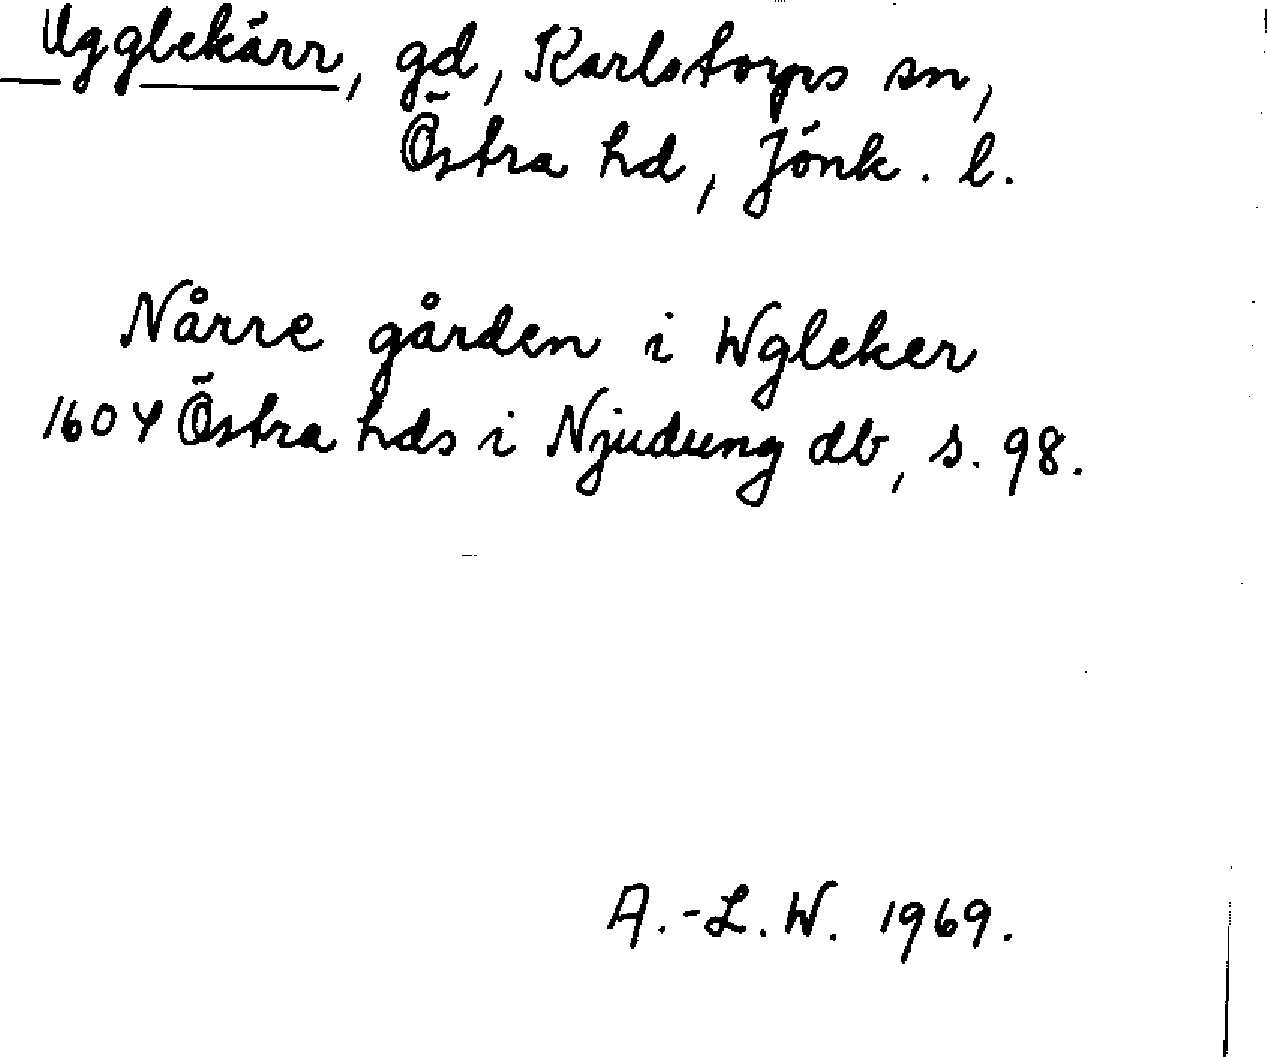 Ugglekärr, gd, Karlstorps sn,
Östra hd, Jönk. l.
Nårre gården i Wgleker
1604 Östra hds i Njudung db, s. 98.
A.-L. W. 1969.